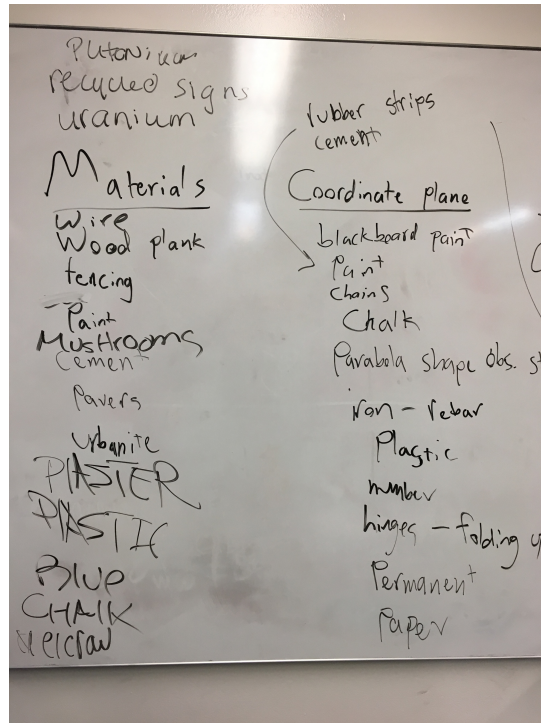 Plutonium
recycled signs
uranium
Materials
Wire
Wood plank
fencing
Paint
MusHrooms
Cement
Pavers
Urbanite
PlASTER
PlASTIC
BlUe
CHAlK
velcraw
rubber strips
cement
Coordinate plane
blackboard paint
Paint
Chains
Chalk
Parabola shape obs.
iron - rebar
Plastic
number
hinges - folding
Permanent
Paper